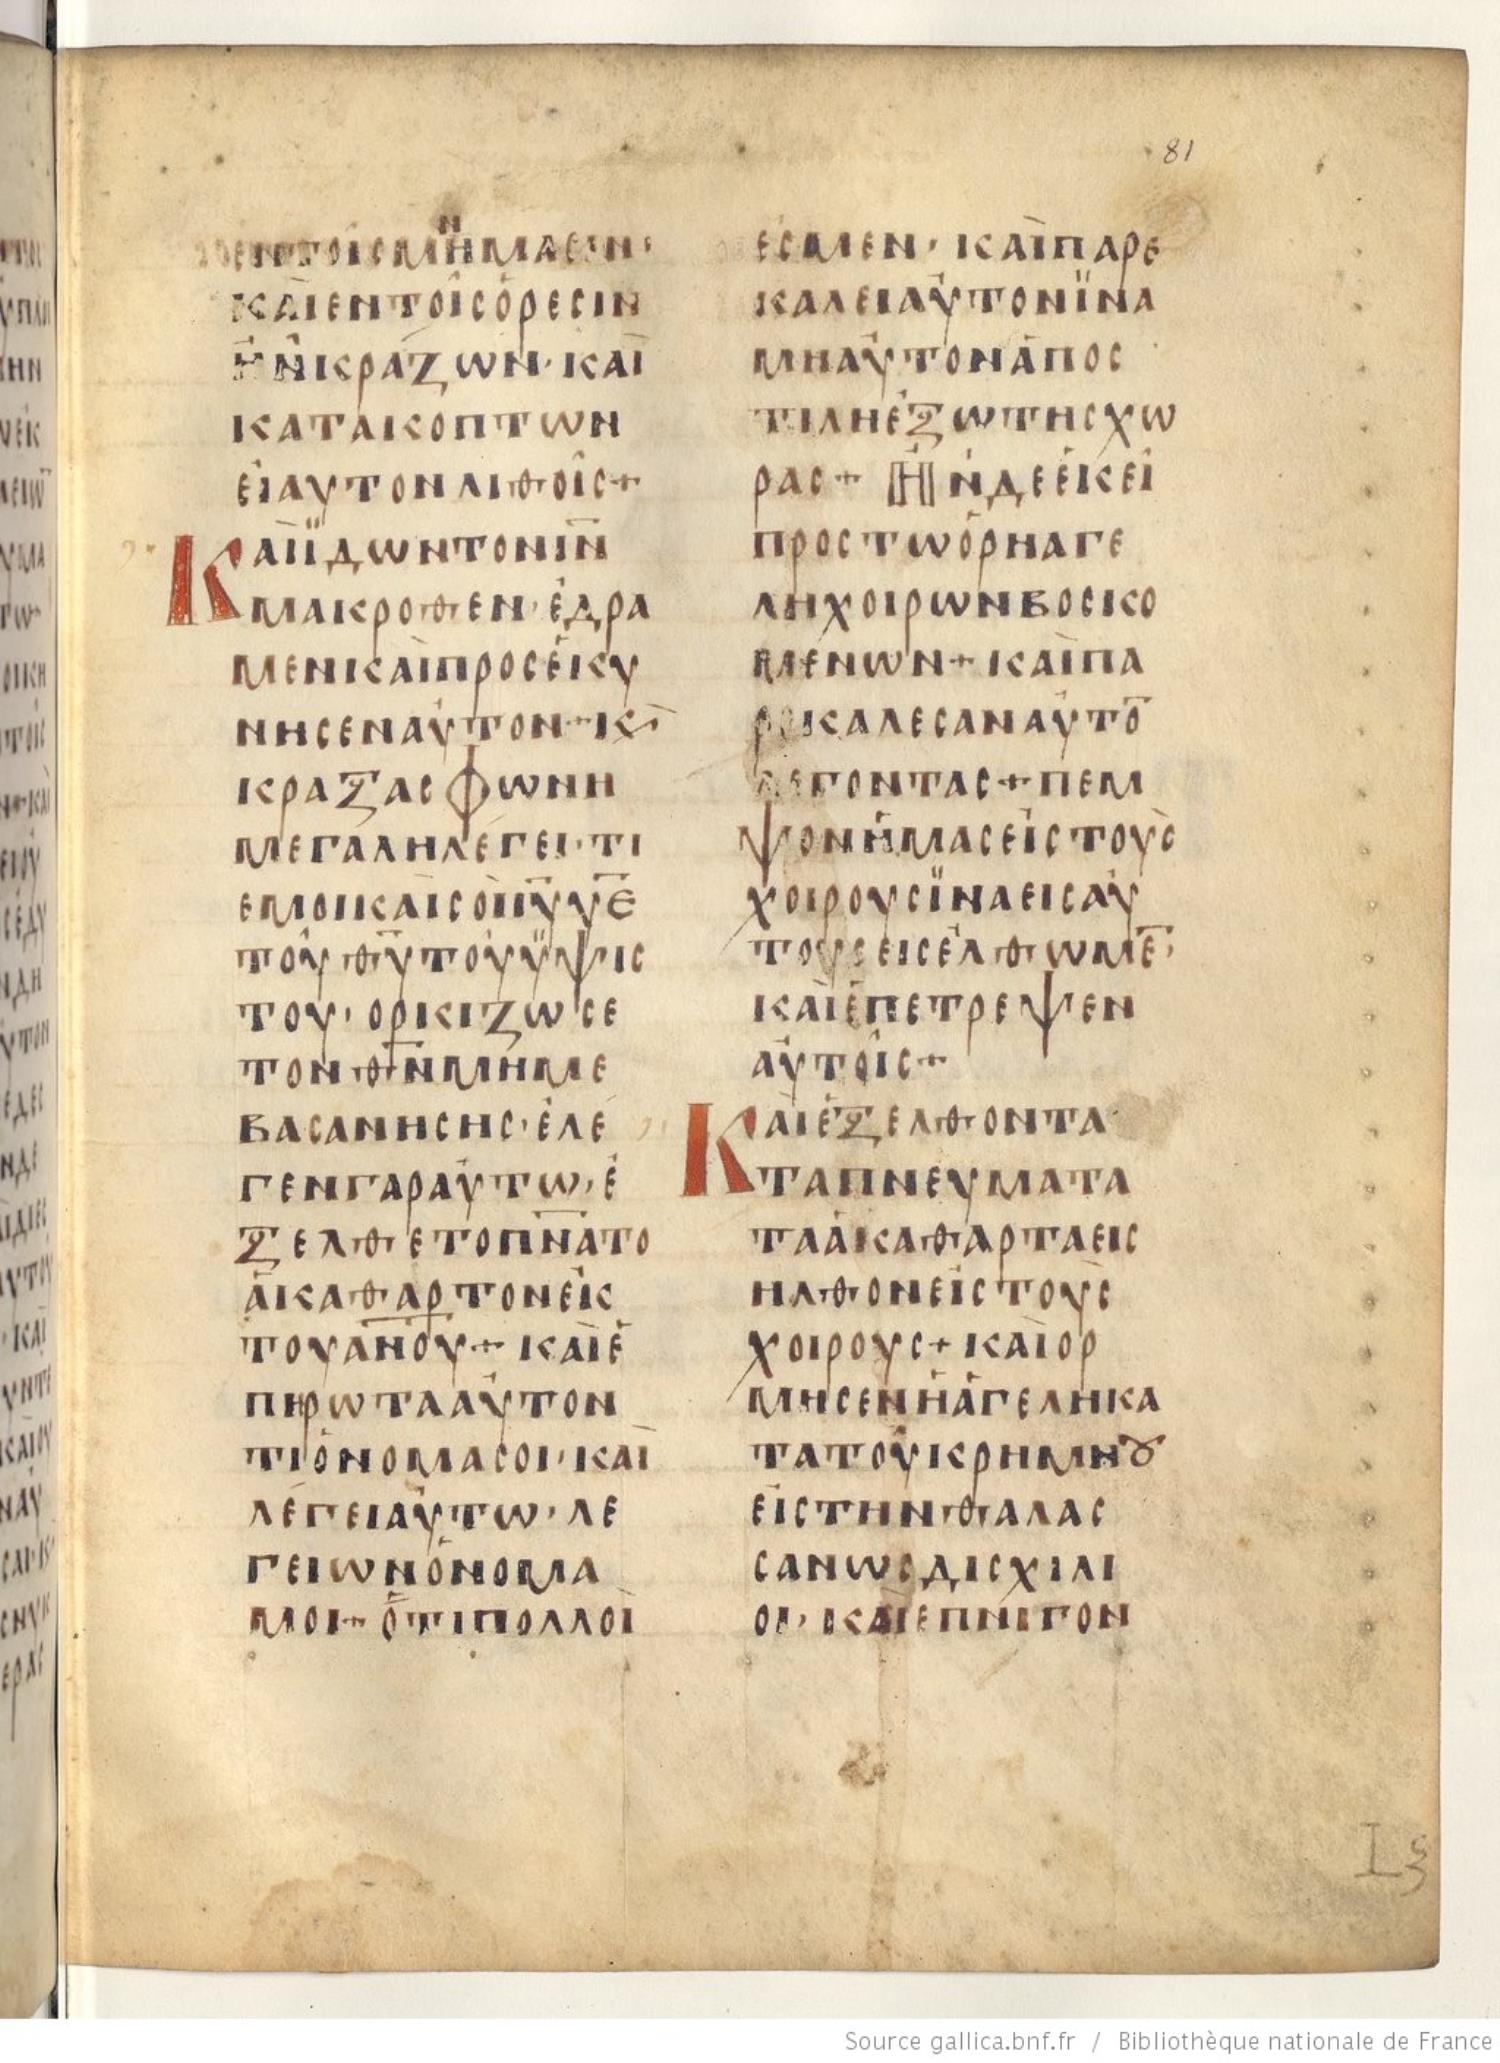 81
ΕΝΤΟΙCΜΝΗΜΑCΙΝ·
ΚΑΙΕΝΤΟΙCΟΡΕCΙΝ
ΗΝΚΡΑΖΩΝ·ΚΑΙ
ΚΑΤΑΚΟΠΤΩΝ
ΕΙΑΥΤΟΝΛΙΘΟΙC+
ΚΑΙΪΔΩΝΤΟΝΙ̅Ν̅
ΜΑΚΡΟΘΕΝ·ΕΔΡΑ
ΜΕΝΚΑΙΠΡΟCΕΚΥ
ΝΗCΕΝΑΥΤΟΝ+Κ
ΚΡΑΞΑCΦΩΝΗ
ΜΕΓΑΛΗΛΕΓΕΙ·ΤΙ
ΕΜΟΙΚΑΙCΟΙΙ̅Υ̅ΥΕ̅
ΤΟΥΘ̅Υ̅ΤΟΥΫΨΙC
ΤΟΥ·ΟΡΚΙΖΩCΕ
ΤΟΝΘ̅Ν̅ΜΗΜΕ
ΒΑCΑΝΗCΗC·ΕΛΕ
ΓΕΝΓΑΡΑΥΤΩ·Ε
ΞΕΛΘΕΤΟΠ̅Ν̅ΑΤΟ
ΑΚΑΘΑΡΤΟΝΕΚ
ΤΟΥΑ̅Ν̅Ο̅Υ̅+ΚΑΙΕ
ΠΗΡΩΤΑΑΥΤΟΝ
ΤΙΟΝΟΜΑCΟΙ·ΚΑΙ
ΛΕΓΕΙΑΥΤΩ·ΛΕ
ΓΕΙΩΝΟΝΟΜΑ
ΜΟΙ+ΟΤΙΠΟΛΛΟΙ
ΕCΜΕΝ·ΚΑΙΠΑΡΕ
ΚΑΛΕΙΑΥΤΟΝΪΝΑ
ΜΗΑΥΤΟΝΑΠΟC
ΤΙΛΗΕΞΩΤΗCΧΩ
ΡΑC+ΗΝΔΕΕΚΕΙ
ΠΡΟCΤΩΟΡΗΑΓΕ
ΛΗΧΟΙΡΩΝΒΟCΚΟ
ΜΕΝΩΝ+ΚΑΙΠΑ
ΡΕΚΑΛΕCΑΝΑΥΤΟ̅
ΛΕΓΟΝΤΑC+ΠΕΜ
ΨΟΝΗΜΑCΕΙCΤΟΥC
ΧΟΙΡΟΥCΪΝΑΕΙCΑΥ
ΤΟΥCΕΙCΕΛΘΩΜΕ̅·
ΚΑΙΕΠΕΤΡΕΨΕΝ
ΑΥΤΟΙC+
ΚΑΙΕΞΕΛΘΟΝΤΑ
ΤΑΠΝΕΥΜΑΤΑ
ΤΑΑΚΑΘΑΡΤΑΕΙC
ΗΛΘΟΝΕΙCΤΟΥC
ΧΟΙΡΟΥC+ΚΑΙΟΡ
ΜΗCΕΝΗΑΓΕΛΗΚΑ
ΤΑΤΟΥΚΡΗΜΝȢ
ΕΙCΤΗΝΘΑΛΑC
CΑΝΩCΔΙCΧΙΛΙ
ΟΙ·ΚΑΙΕΠΝΙΓΟΝ
Source gallica.bnf.fr / Bibliothèque nationale de France